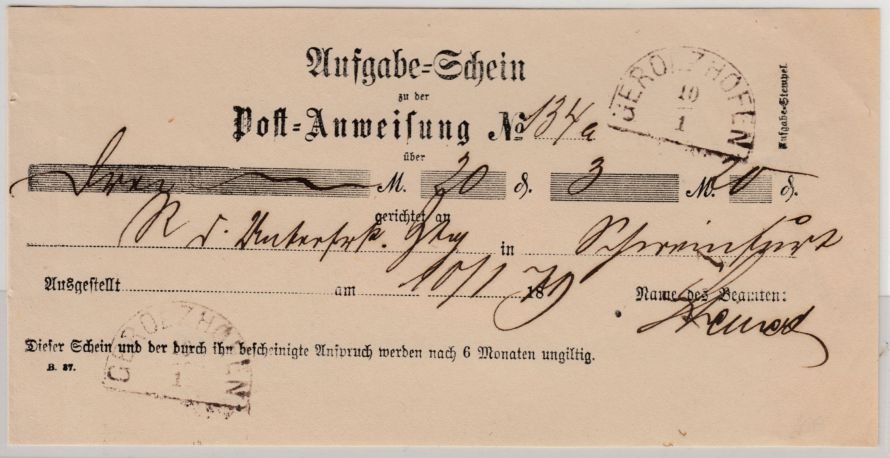 Aufgabe-Schein
zu der
Post-Anweisung No 134a
über
Drey M. 20 ₰. 3 M. 20 ₰.
gerichtet an
R d. Unterfrk. Ztg in Schweinfurt
Ausgestellt am 10/1 1879 Name des Beamten:
Dieser Schein und der durch ihn bescheinigte Anspruch werden nach 6 Monaten ungiltig.
B. 37.
GEROLZHOFEN
10
1
Aufgabe-Stempel.
GEROLZHOFEN
1